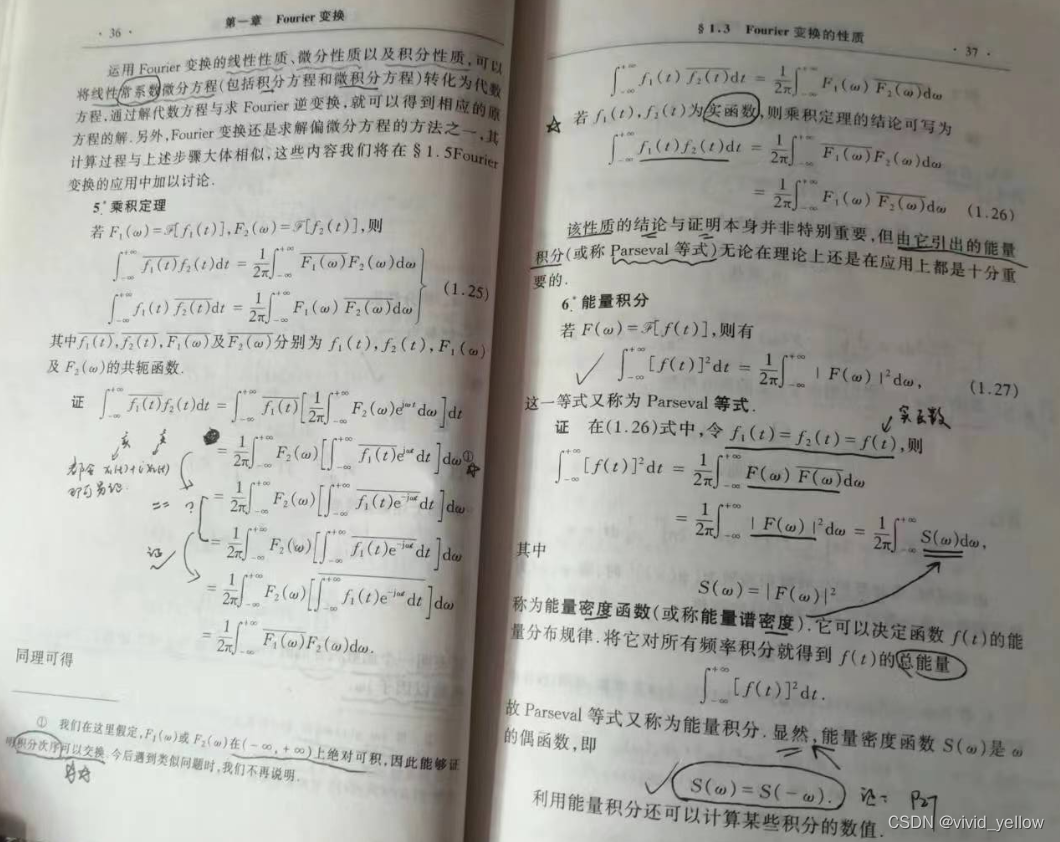 · 36 ·
第一章 Fourier 变换
运用 Fourier 变换的线性性质、微分性质以及积分性质,可以
将线性常系数微分方程(包括积分方程和微积分方程)转化为代数
方程,通过解代数方程与求 Fourier 逆变换,就可以得到相应的原
方程的解.另外,Fourier 变换还是求解偏微分方程的方法之一,其
计算过程与上述步骤大体相似,这些内容我们将在 § 1.5Fourier
变换的应用中加以讨论.
5° 乘积定理
若 F₁(ω)=ℱ[f₁(t)],F₂(ω)=ℱ[f₂(t)],则
∫_{-∞}^{+∞} \overline{f₁(t)}f₂(t)dt = \frac{1}{2π}∫_{-∞}^{+∞} \overline{F₁(ω)}F₂(ω)dω
∫_{-∞}^{+∞} f₁(t) \overline{f₂(t)}dt = \frac{1}{2π}∫_{-∞}^{+∞} F₁(ω) \overline{F₂(ω)}dω
(1.25)
其中\overline{f₁(t)},\overline{f₂(t)},\overline{F₁(ω)}及\overline{F₂(ω)}分别为 f₁(t),f₂(t),F₁(ω)
及 F₂(ω)的共轭函数.
证 ∫_{-∞}^{+∞} \overline{f₁(t)}f₂(t)dt = ∫_{-∞}^{+∞} \overline{f₁(t)}[\frac{1}{2π}∫_{-∞}^{+∞} F₂(ω)e^{jωt}dω]dt
= \frac{1}{2π}∫_{-∞}^{+∞} F₂(ω)[∫_{-∞}^{+∞} \overline{f₁(t)}e^{jωt}dt]dω①
= \frac{1}{2π}∫_{-∞}^{+∞} F₂(ω)[∫_{-∞}^{+∞} \overline{f₁(t)e^{-jωt}}dt]dω
= \frac{1}{2π}∫_{-∞}^{+∞} F₂(ω)[∫_{-∞}^{+∞} \overline{f₁(t)e^{-jωt}}dt]dω
= \frac{1}{2π}∫_{-∞}^{+∞} F₂(ω)[\overline{∫_{-∞}^{+∞} f₁(t)e^{-jωt}dt}]dω
= \frac{1}{2π}∫_{-∞}^{+∞} \overline{F₁(ω)}F₂(ω)dω.
证
同理可得
① 我们在这里假定,F₁(ω)或 F₂(ω)在(-∞,+∞)上绝对可积,因此能够证
明积分次序可以交换.今后遇到类似问题时,我们不再说明.
§ 1.3 Fourier 变换的性质
· 37 ·
∫_{-∞}^{+∞} f₁(t) \overline{f₂(t)}dt = \frac{1}{2π}∫_{-∞}^{+∞} F₁(ω) \overline{F₂(ω)}dω
☆ 若 f₁(t),f₂(t)为实函数,则乘积定理的结论可写为
∫_{-∞}^{+∞} f₁(t)f₂(t)dt = \frac{1}{2π}∫_{-∞}^{+∞} \overline{F₁(ω)}F₂(ω)dω
= \frac{1}{2π}∫_{-∞}^{+∞} F₁(ω) \overline{F₂(ω)}dω (1.26)
该性质的结论与证明本身并非特别重要,但由它引出的能量
积分(或称 Parseval 等式)无论在理论上还是在应用上都是十分重
要的.
6° 能量积分
若 F(ω)=ℱ[f(t)],则有
∫_{-∞}^{+∞} [f(t)]²dt = \frac{1}{2π}∫_{-∞}^{+∞} |F(ω)|²dω, (1.27)
这一等式又称为 Parseval 等式.
实函数
证 在(1.26)式中,令 f₁(t)=f₂(t)=f(t),则
∫_{-∞}^{+∞} [f(t)]²dt = \frac{1}{2π}∫_{-∞}^{+∞} F(ω) \overline{F(ω)}dω
= \frac{1}{2π}∫_{-∞}^{+∞} |F(ω)|²dω = \frac{1}{2π}∫_{-∞}^{+∞} S(ω)dω,
其中
S(ω)=|F(ω)|²
称为能量密度函数(或称能量谱密度).它可以决定函数 f(t)的能
量分布规律.将它对所有频率积分就得到 f(t)的总能量
∫_{-∞}^{+∞} [f(t)]²dt.
故 Parseval 等式又称为能量积分.显然,能量密度函数 S(ω)是 ω
的偶函数,即
S(ω)=S(-ω). 证: P27
利用能量积分还可以计算某些积分的数值.
CSDN @vivid_yellow